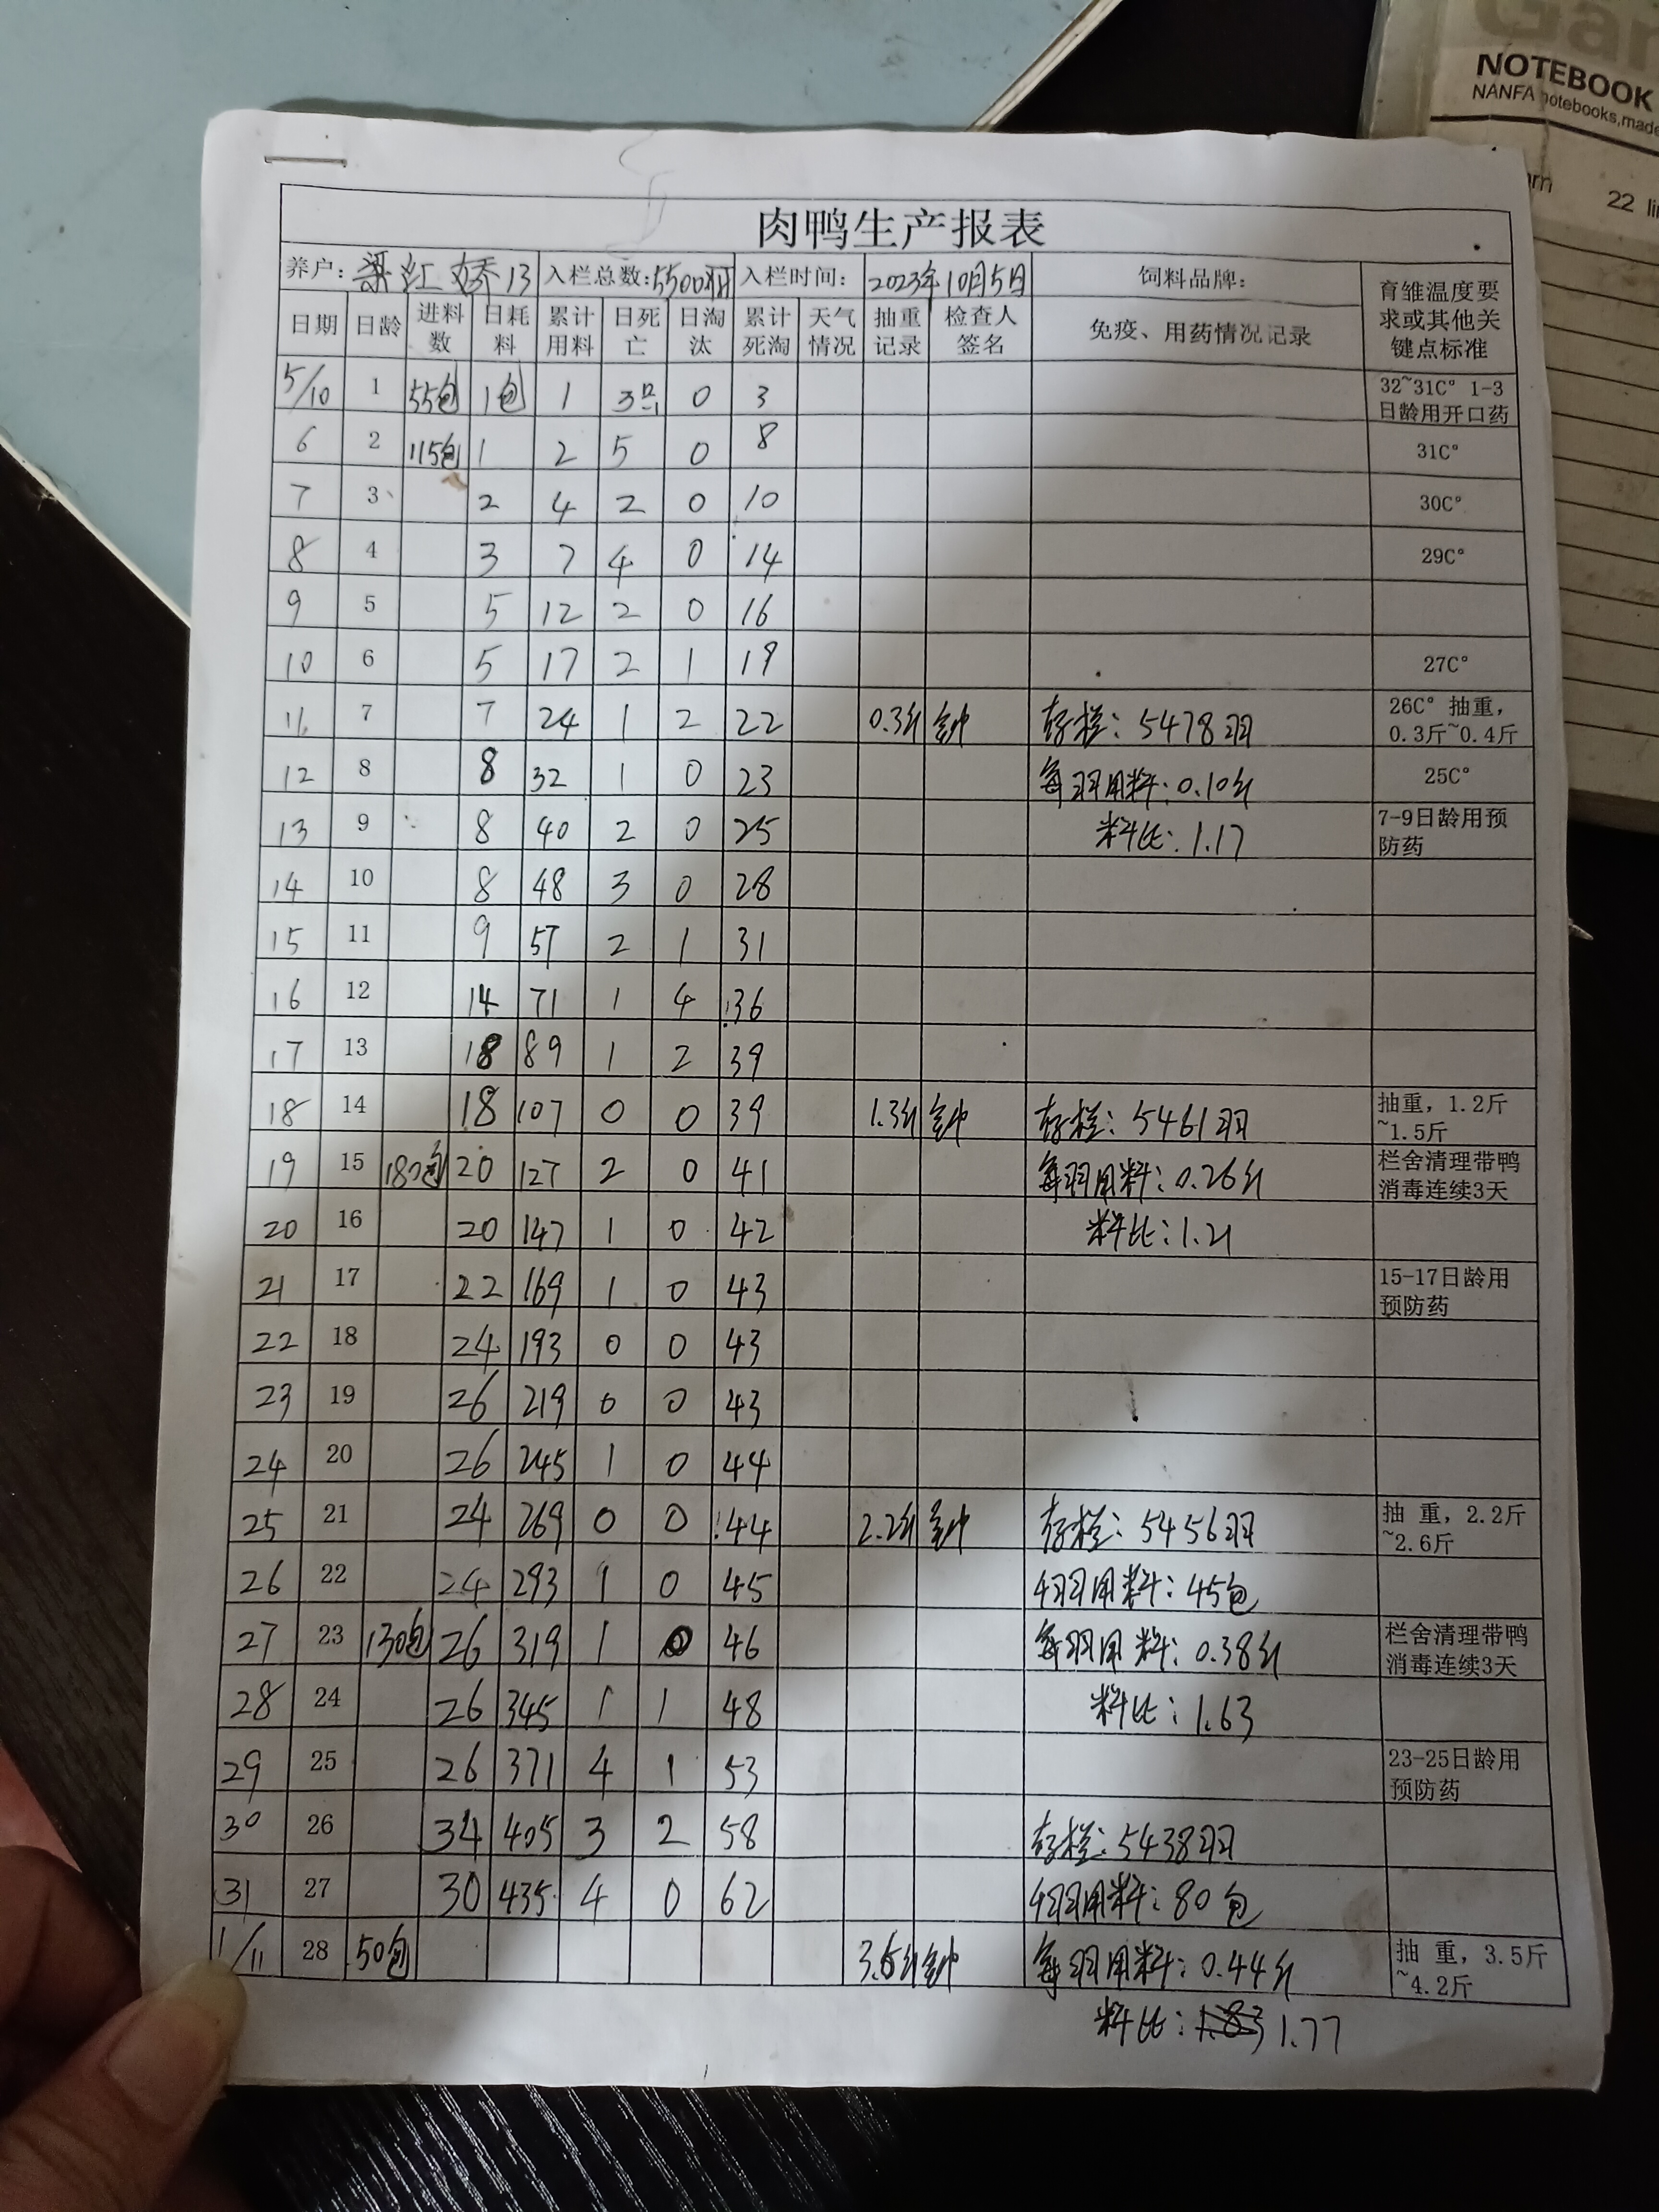 Gar
NOTEBOOK
NANFA notebooks,made
22 li
肉鸭生产报表
养户: 梁红娇13 入栏总数:5500羽 入栏时间: 2023年10月5日 饲料品牌: 育雏温度要求或其他关键点标准
日期 日龄 进料数 日耗料 累计用料 日死亡 日淘汰 累计死淘 天气情况 抽重记录 检查人签名 免疫、用药情况记录
5/10 1 55包 1包 1 3 0 3 32~31C° 1-3日龄用开口药
6 2 115包 1 2 5 0 8 31C°
7 3 2 4 2 0 10 30C°
8 4 3 7 4 0 14 29C°
9 5 5 12 2 0 16
10 6 5 17 2 1 19 27C°
11 7 7 24 1 2 22 0.3斤 存栏: 5478羽 26C° 抽重,0.3斤~0.4斤
12 8 8 32 1 0 23 每羽用料: 0.10斤 25C°
13 9 8 40 2 0 25 料比: 1.17 7-9日龄用预防药
14 10 8 48 3 0 28
15 11 9 57 2 1 31
16 12 14 71 1 4 36
17 13 18 89 1 2 39
18 14 18 107 0 0 39 1.3斤 存栏: 5461羽 抽重, 1.2斤~1.5斤
19 15 187包 20 127 2 0 41 每羽用料: 0.26斤 栏舍清理带鸭消毒连续3天
20 16 20 147 1 0 42 料比: 1.21
21 17 22 169 1 0 43 15-17日龄用预防药
22 18 24 193 0 0 43
23 19 26 219 0 0 43
24 20 26 245 1 0 44
25 21 24 269 0 0 44 2.2斤 存栏: 5456羽 抽 重, 2.2斤~2.6斤
26 22 24 293 1 0 45 今日用料: 45包
27 23 130包 26 319 1 0 46 每羽用料: 0.38斤 栏舍清理带鸭消毒连续3天
28 24 26 345 1 1 48 料比: 1.63
29 25 26 371 4 1 53 23-25日龄用预防药
30 26 34 405 3 2 58 存栏: 5438羽
31 27 30 435 4 0 62 今日用料: 80包
1/11 28 50包 3.6斤 每羽用料: 0.44斤 抽 重, 3.5斤~4.2斤
料比: 1.83 1.77